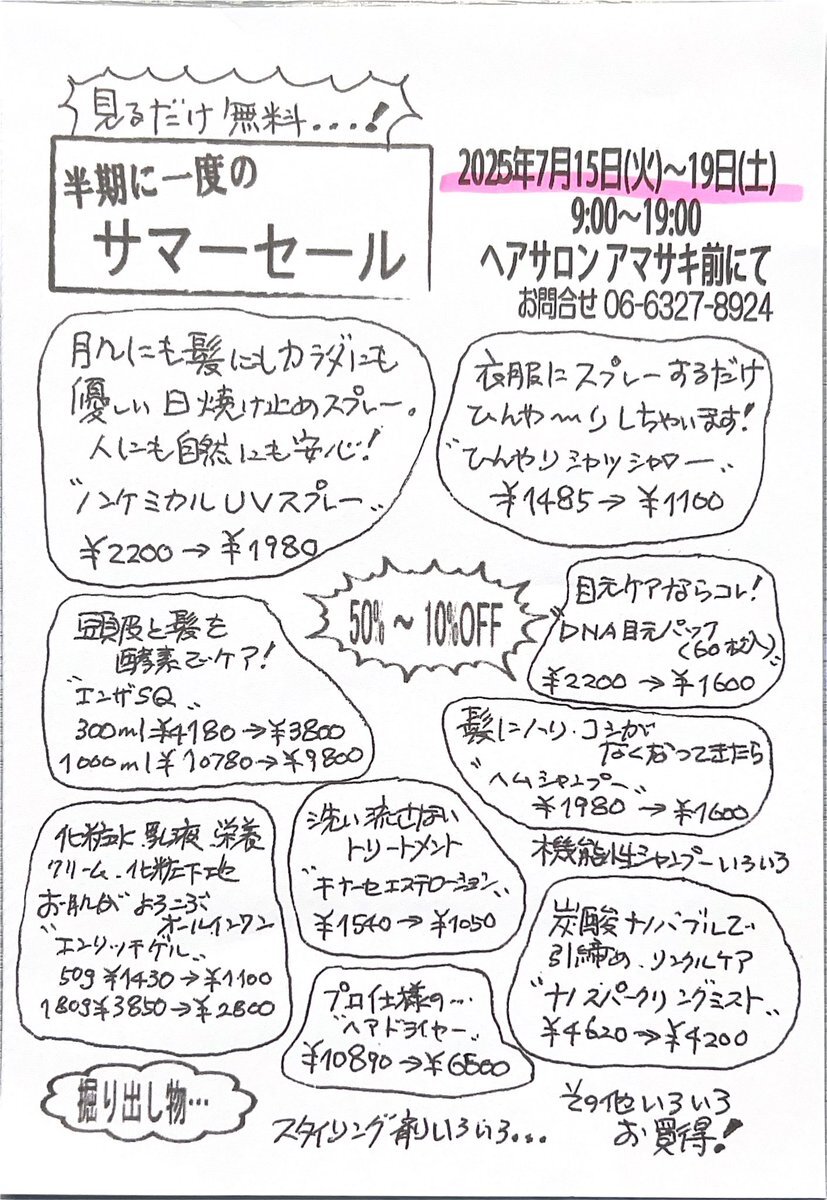 見るだけ無料...!
半期に一度の
サマーセール
2025年7月15日(火)～19日(土)
9:00～19:00
ヘアサロン アマサキ前にて
お問合せ 06-6327-8924
肌にも髪にもカラダにも
優しい日焼け止めスプレー。
人にも自然にも安心!
"ノンケミカルUVスプレー"
¥2200→¥1980
衣服にスプレーするだけ
ひんや〜りしちゃいます!
"ひんやりシャツシャワー"
¥1485→¥1100
50% ~ 10%OFF
目元ケアならコレ!
"DNA目元パック
(60枚入)"
¥2200→¥1600
頭皮と髪を
酵素でケア!
"エンザSQ"
300ml¥4180→¥3800
1000ml¥10780→¥9800
髪にハリ・コシが
なくなってきたら
"ヘムシャンプー"
¥1980→¥1600
機能性シャンプーいろいろ
化粧水.乳液.栄養
クリーム.化粧下地
お肌がよろこぶ
オールインワン
"エンリッチゲル"
50g¥1430→¥1100
180g¥3850→¥2800
洗い流さない
トリートメント
"キナーセエステローション"
¥1540→¥1050
炭酸ナノバブルで
引締め.リンクルケア
"ナノスパークリングミスト"
¥4620→¥4200
プロ仕様の…
"ヘアドライヤー"
¥10890→¥6500
掘り出し物…
スタイリング剤いろいろ...
その他いろいろ
お買得!